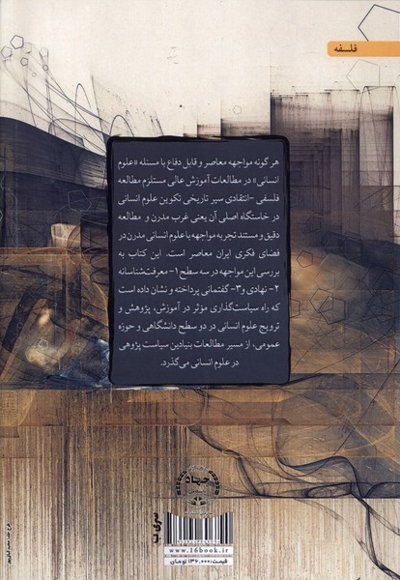 فلسفه
هر گونه مواجهه معاصر و قابل دفاع با مسئله «علوم
انسانی» در مطالعات آموزش عالی مستلزم مطالعه
فلسفی -انتقادی سیر تاریخی تکوین علوم انسانی
در خاستگاه اصلی آن یعنی غرب مدرن و مطالعه
دقیق و مستند تجربه مواجهه با علوم انسانی مدرن در
فضای فکری ایران معاصر است. این کتاب به
بررسی این مواجهه در سه سطح ۱- معرفت‌شناسانه
۲- نهادی و ۳- گفتمانی پرداخته و نشان داده است
که راه سیاست‌گذاری مؤثر در آموزش، پژوهش و
ترویج علوم انسانی در دو سطح دانشگاهی و حوزه
عمومی، از مسیر مطالعات بنیادین سیاست پژوهی
در علوم انسانی می‌گذرد.
جهاد
سری ب
www.16book.ir
قیمت: ۱۳۶,۰۰۰ تومان